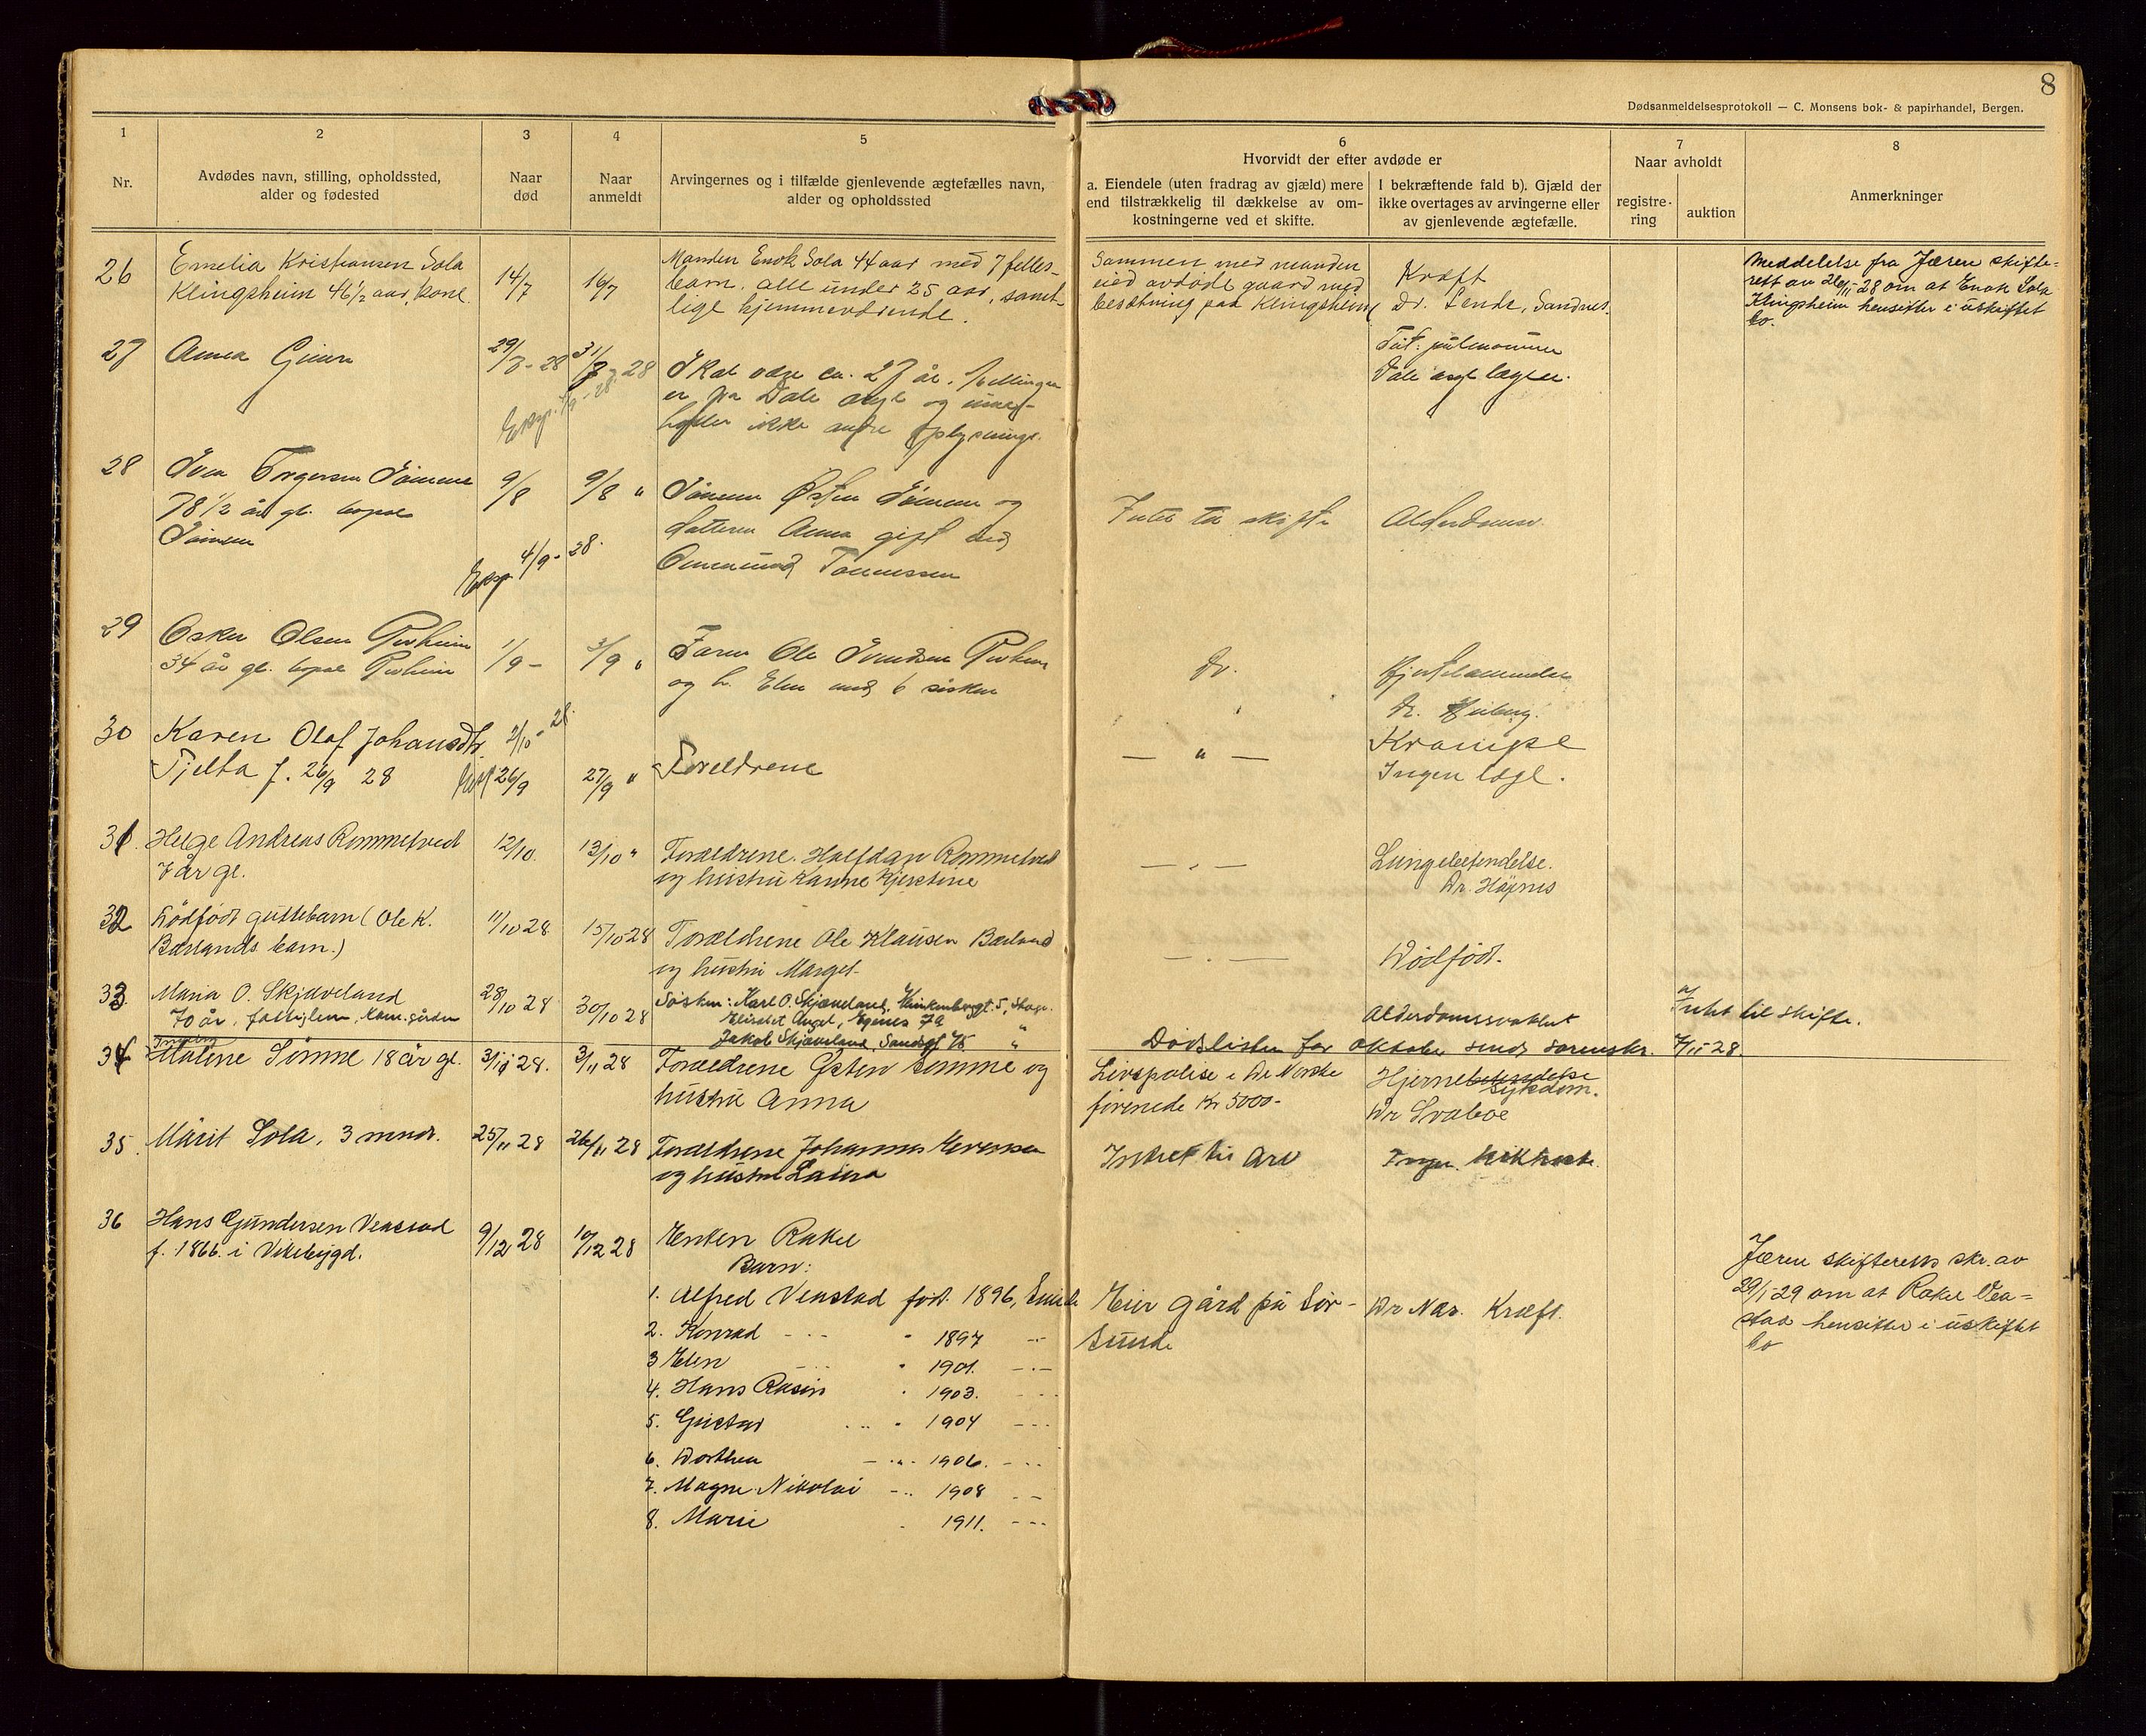 8
Dødsanmeldelsesprotokoll — C. Monsens bok- & papirhandel, Bergen.
1
Nr.
2
Avdødes navn, stilling, opholdssted,
alder og fødested
3
Naar
død
4
Naar
anmeldt
5
Arvingernes og i tilfælde gjenlevende ægtefælles navn,
alder og opholdssted
6
Hvorvidt der efter avdøde er
a. Eiendele (uten fradrag av gjæld) mere
end tilstrækkelig til dækkelse av om-
kostningerne ved et skifte.
I bekræftende fald b). Gjæld der
ikke overtages av arvingerne eller
av gjenlevende ægtefælle.
7
Naar avholdt
registre-
ring
auktion
8
Anmerkninger
26
Emelia Kristiansen Sola
Klingsheim 46 1/2 aar, kone
14/7
16/7
Manden Enok Sola 44 aar med 7 felles-
barn. alle under 25 aar, samt-
lige hjemmeværende.
Sammen med manden
eied avdøde gaard med
besætning paa Klingsheim
Kræft
Dr. Lende, Sandnes.
Meddelelse fra Jæren skifte-
rett av 26/11-28 om at Enok Sola
Klingsheim hensitter i uskiftet
bo.
27
Anna
29/ - 28
31/ - 28
Skal være ca. 27 år.
er fra Dale asyl og inne-
holder ikke andre oplysninger.
Dale asyl lægen.
Eksp. /9 - 28
28
Torgersen Sømme
78 1/2 år gl. bopæl
Sømme
9/8
9/8 "
Sønnen Østen Sømme og
datteren Anna gift med
Tønnessen
Intet til skifte
Eksp. 4/9 - 28.
29
Olsen
34 år gl. bopæl
1/9 -
3/9 "
Faren Ole
og h. med 6 søsken
Do.
Dr.
Eksp. 2/10 - 28.
30
Karen Olaf Johansdtr
Tjelta f. 26/9 28
26/9
27/9 "
Foreldrene
— " —
Krampe
Ingen læge.
31.
Helge Andreas Rommetved
7 år gl.
12/10.
13/10 "
Foreldrene. Halfdan Rommetved
og hustru Hanne Kjerstine
— " —
Lungebetendelse.
Dr. Høynes
32
Dødfødt guttebarn (Ole K.
Bærlands barn.)
11/10 28
15/10 28
Foreldrene Ole Klausen Bærland
og hustru Marget
— " —
Dødfødt.
33.
Maria O. Skjæveland
70 år, fattiglem, Kom. gården
28/10 28
30/10 28
Søsken: Karl O. Skjæveland,
Jakob Skjæveland,
Alderdomssvakhet
Intet til skifte.
Dødslisten for oktober sendt sorenskr. 7/11-28.
34
Malene Sømme 18 år gl.
28.
3/11 28
Foreldrene Østen Sømme og
hustru Anna
Livspolise i De Norske
forenede Kr 5000-
Hjernebetendelse
sykdom.
Dr Svaboe
35.
Marit Sola, 3 mndr.
25/11 28
26/11 28
Foreldrene Johannes
og hustru Laura
Intet til arv
Ingen. kikhoste.
36
Hans Gundersen Veastad
f. 1866. i Vikebygd.
9/12 28
10/12 28
Enken Rakel
Barn:
1. Alfred Veastad født. 1896, Sunde
2. Konrad - " - " 1897 - " -
3 Elen - " - " 1901. - " -
4. Hans Rasin " 1903. - " -
5. Gustav - " - " 1904 - " -
6. Dorthea - " - 1906. - " -
7. Magne Nikolai - " - 1908 - " -
8. Marie " 1911. - " -
Eier gård på Sør-
Sunde
Dr Næs. Kræft.
Jæren skifteretts skr. av
29/1 29 om at Rakel Vea=
stad hensitter i uskiftet
bo